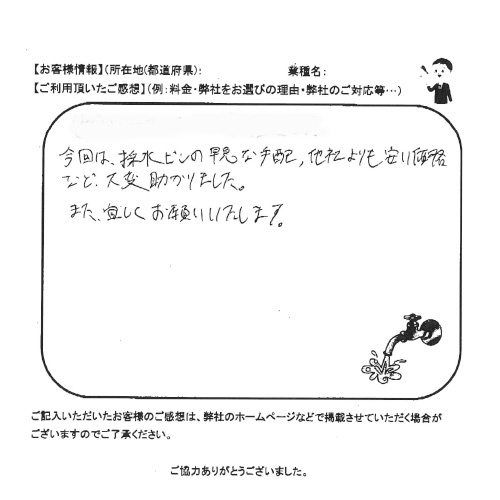 【お客様情報】(所在地(都道府県): 業種名:
【ご利用頂いたご感想】(例:料金・弊社をお選びの理由・弊社のご対応等…)
今回は、採水ビンの早急な手配、他社よりも安い価格
など、大変助かりました。
また、宜しくお願いいたします。
ご記入いただいたお客様のご感想は、弊社のホームページなどで掲載させていただく場合が
ございますのでご了承ください。
ご協力ありがとうございました。